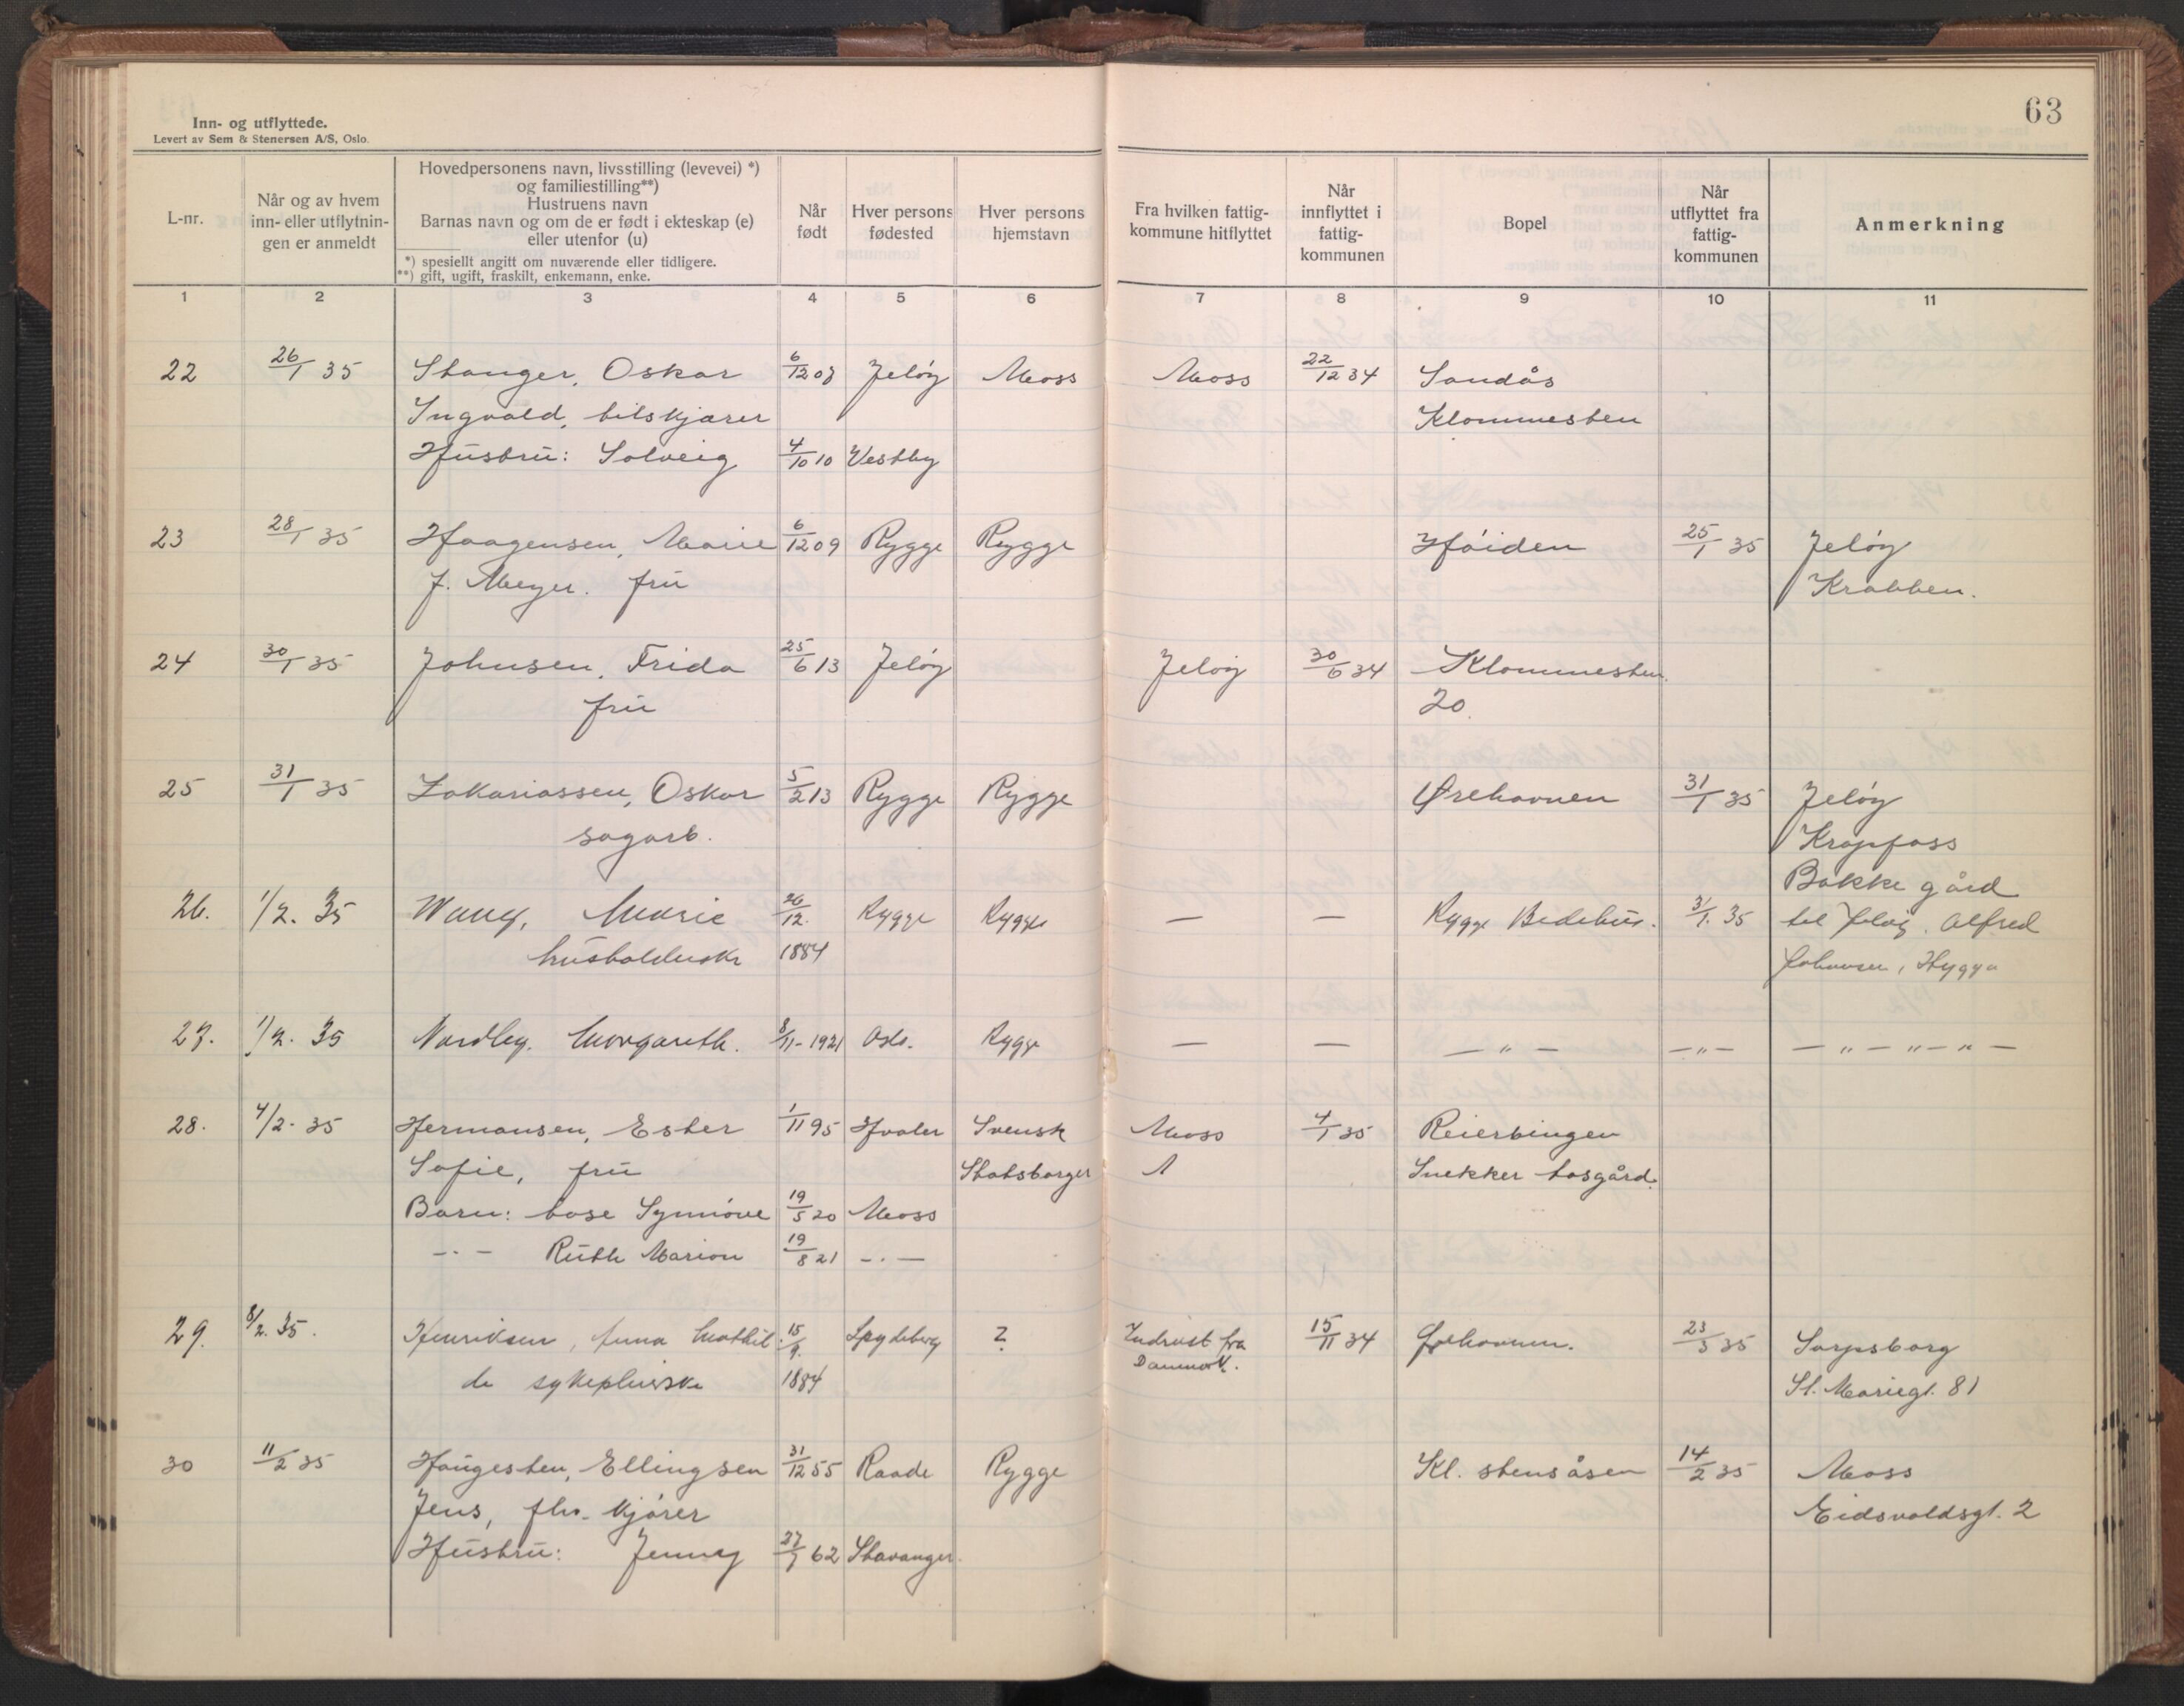 63
Inn- og utflyttede.
Levert av Sem & Stenersen A/S, Oslo.
L-nr.
Når og av hvem
inn- eller utflytnin-
gen er anmeldt
Hovedpersonens navn, livsstilling (levevei) *)
og familiestilling**)
Hustruens navn
Barnas navn og om de er født i ekteskap (e)
eller utenfor (u)
*) spesiellt angitt om nuværende eller tidligere.
**) gift, ugift, fraskilt, enkemann, enke.
Når
født
Hver persons
fødested
Hver persons
hjemstavn
Fra hvilken fattig-
kommune hitflyttet
Når
innflyttet i
fattig-
kommunen
Bopel
Når
utflyttet fra
fattig-
kommunen
Anmerkning
1 2 3 4 5 6 7 8 9 10 11
22 26/1 35 Stanger, Oskar 6/12 07 Jeløy Moss Moss 22/12 34 Sandås
Ingvald, bilskjører Klommesten
Hustru: Solveig 4/10 10 Vestby
23 28/1 35 Haagensen, Marie 6/12 09 Rygge Rygge Høiden 25/1 35 Jeløy
f. Meyer. fru Krabben.
24 30/1 35 Johnsen, Frida 25/6 13 Jeløy Jeløy 30/6 34 Klommesten
fru 20
25 31/1 35 Zakariassen, Oskar 5/2 13 Rygge Rygge Ørehavnen 31/1 35 Jeløy
sagarb. Krapfoss
Bakke gård
26. 1/2. 35 Wang, Marie 26/12. Rygge Rygge — — Rygge Bedehus. 31/1. 35 til Jeløy. Alfred
husholderske 1884 Johansen, Hygga
27. 1/2. 35 Nordby. Margareth. 8/11 - 1921 Oslo. Rygge — — — " — — " — — " — " — " —
28. 4/2. 35 Hermansen, Ester 1/11 95 Hvaler Svensk Moss 4/1 35 Reierbingen
Sofie, fru Statsborger Snekker
Barn: Synnøve 19/5 20 Moss
—·— Ruth Marion 19/8 21 —·—
29. 8/2. 35. Henriksen, Anna Mathil 15/9. Spydeberg ? Indreist fra 15/11 34 Ørehavnen. 23/3 35 Sarpsborg
Danmark.
de sykepleierske 1884 St. Mariegt. 81
30 11/2 35 Haugesten, Ellingsen 31/12 55 Raade Rygge Kl. stensåsen 14/2 35 Moss
Jens, fhv. kjører Eidsvoldsgt. 2
Hustru: Jenny 27/7 62 Stavanger.